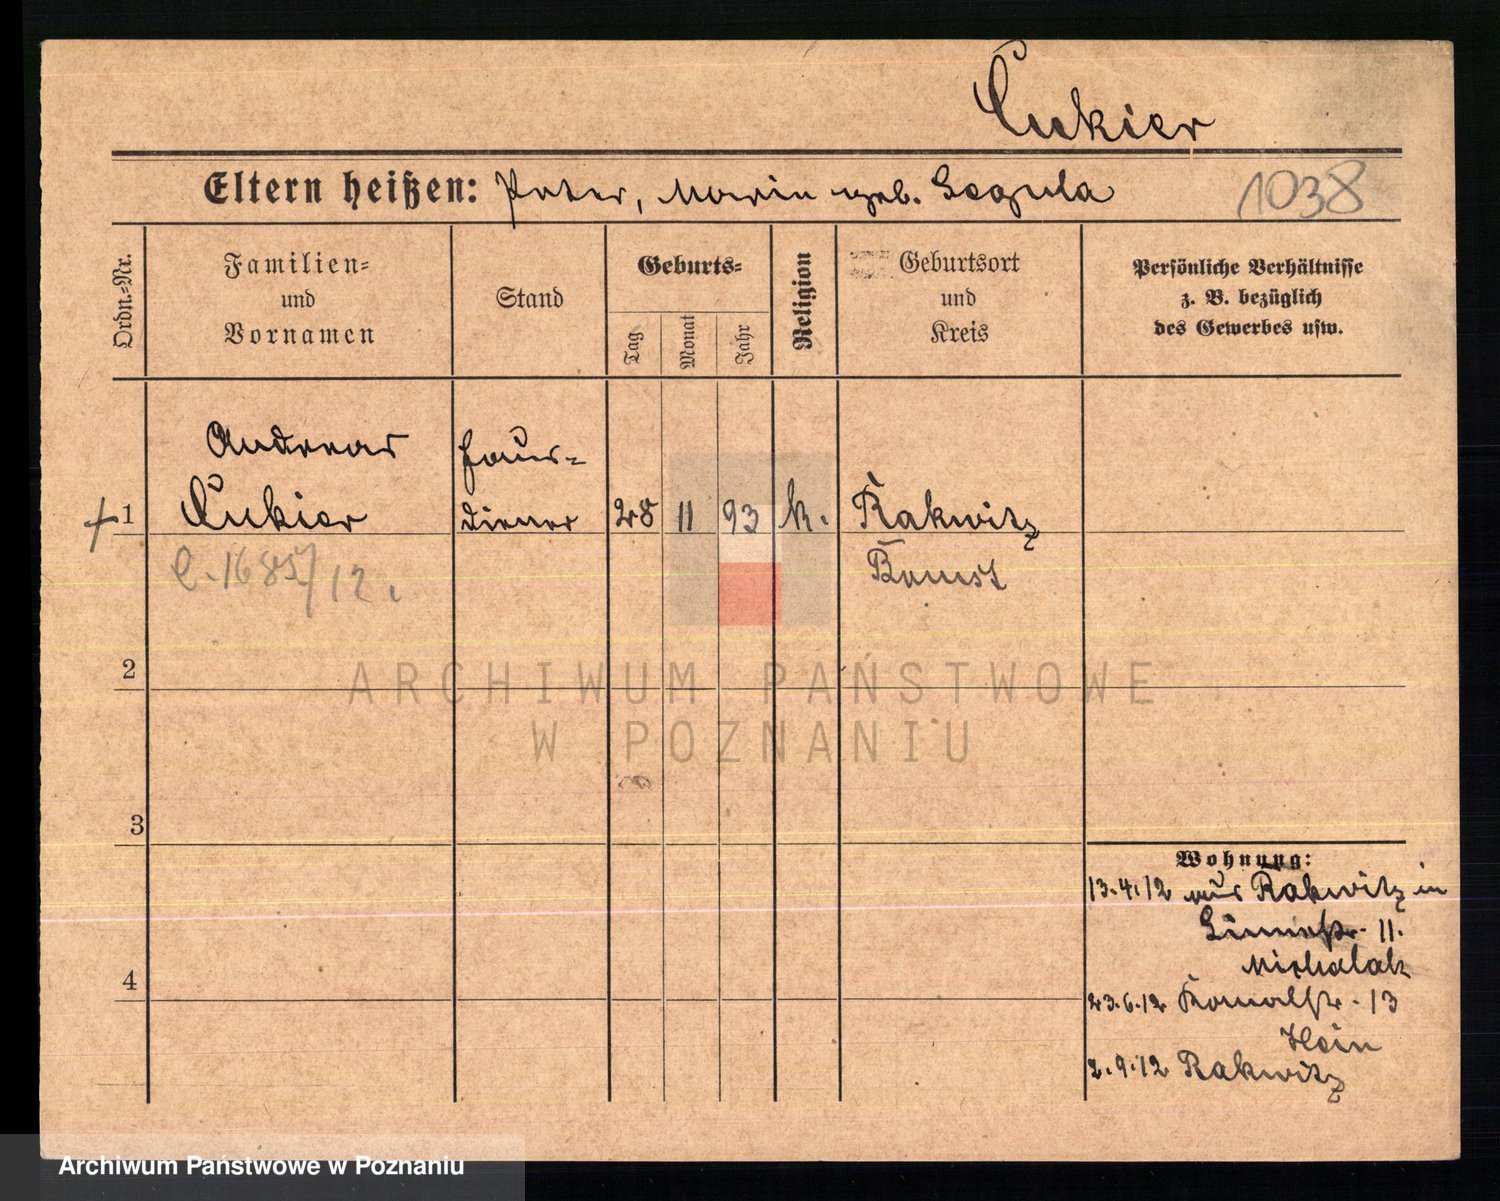 Cukier
Eltern heißen: Peter, Maria geb. Segula
1038
Ordn.=Nr.
Familien=
und
Vornamen
Stand
Geburts=
Tag
Monat
Jahr
Religion
Geburtsort
und
Kreis
Persönliche Verhältnisse
z. B. bezüglich
des Gewerbes usw.
Andreas
Cukier
Haus=
diener
+ 1
28 11 93 k. Rakwitz
Bomst
C. 1685/12.
2
ARCHIWUM PAŃSTWOWE
W POZNANIU
3
Wohnung:
13.4.12 aus Rakwitz in
11.
Michalak
4
23.6.12 13
Hein
2.9.12 Rakwitz
Archiwum Państwowe w Poznaniu